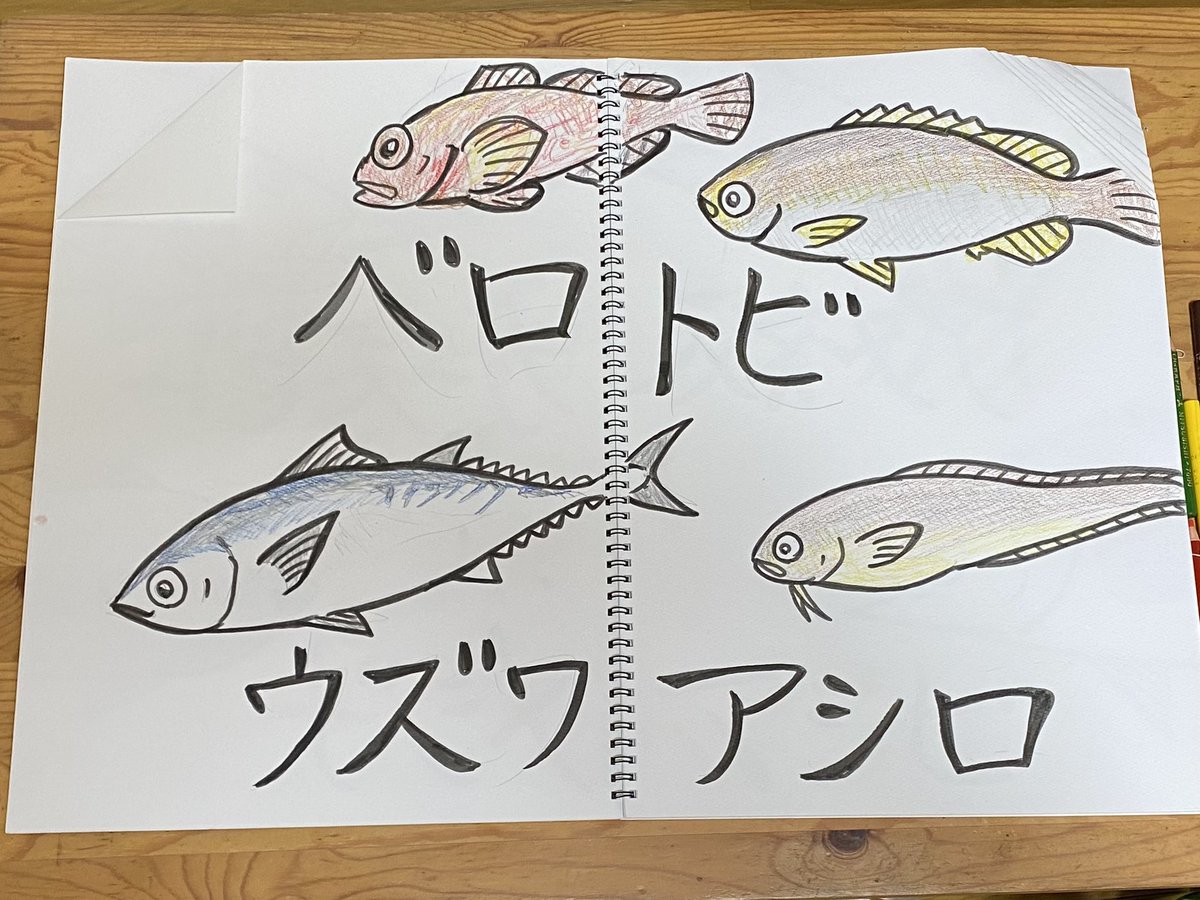 ベロ
トビ
ウズワ
アシロ